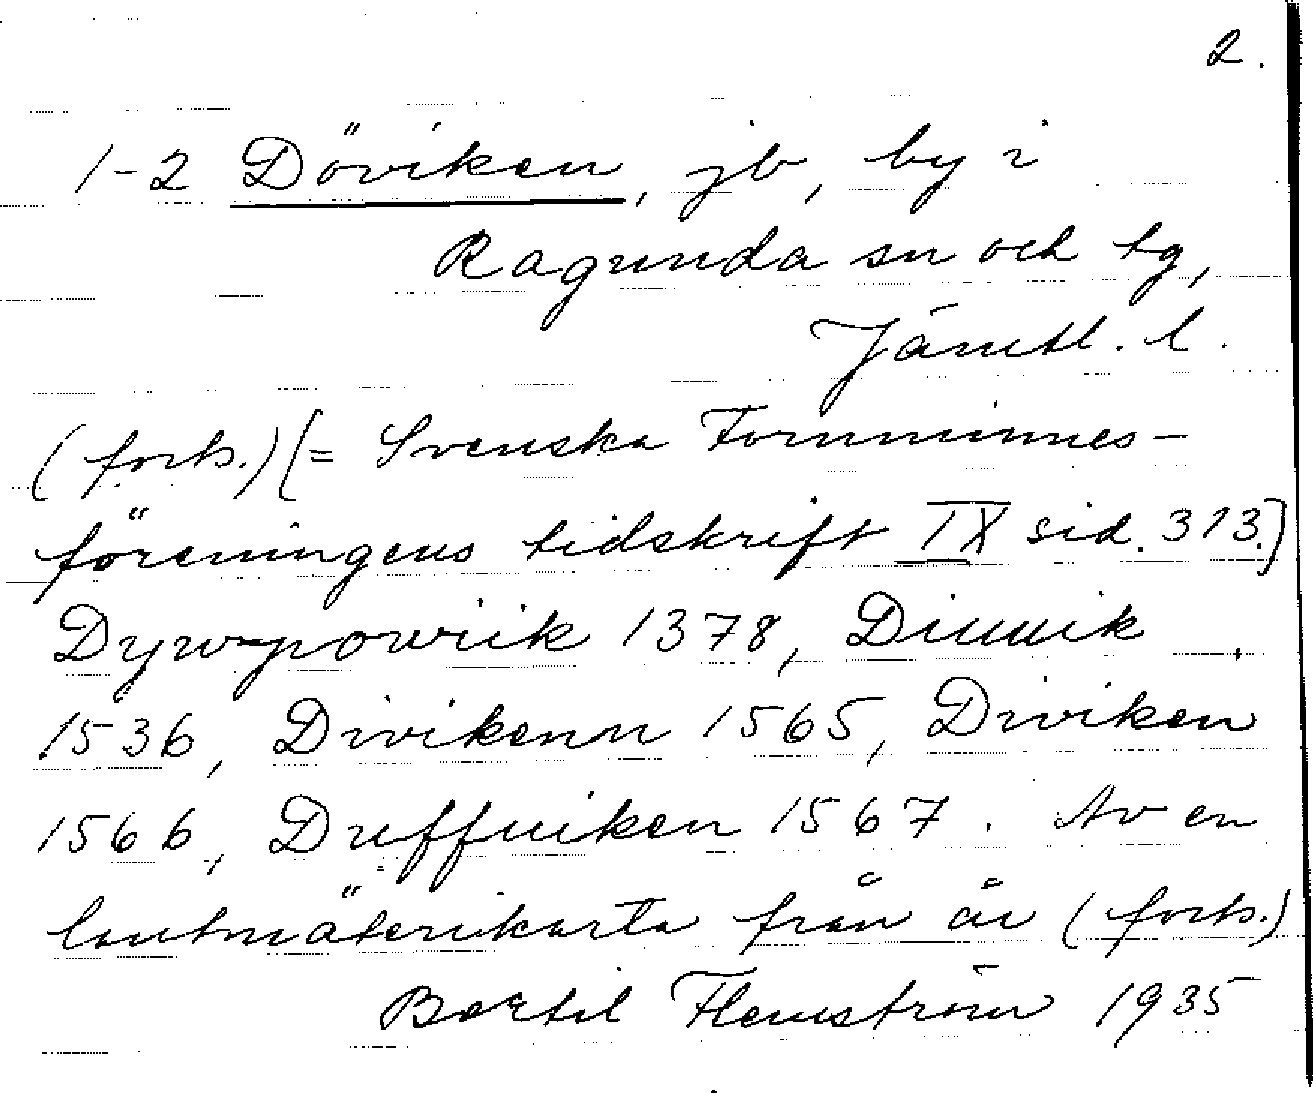 2.
1-2 Döviken, jb, by i
Ragunda sn och tg,
Jämtl. l.
(forts.) [= Svenska Fornminnes-
föreningens tidskrift IX sid. 313.]
1378, Diuuik
1536, Divikenn 1565, Diviken
1566, Duffuiken 1567. Av en
lantmäterikarta från år (forts.)
Bertil Flemström 1935